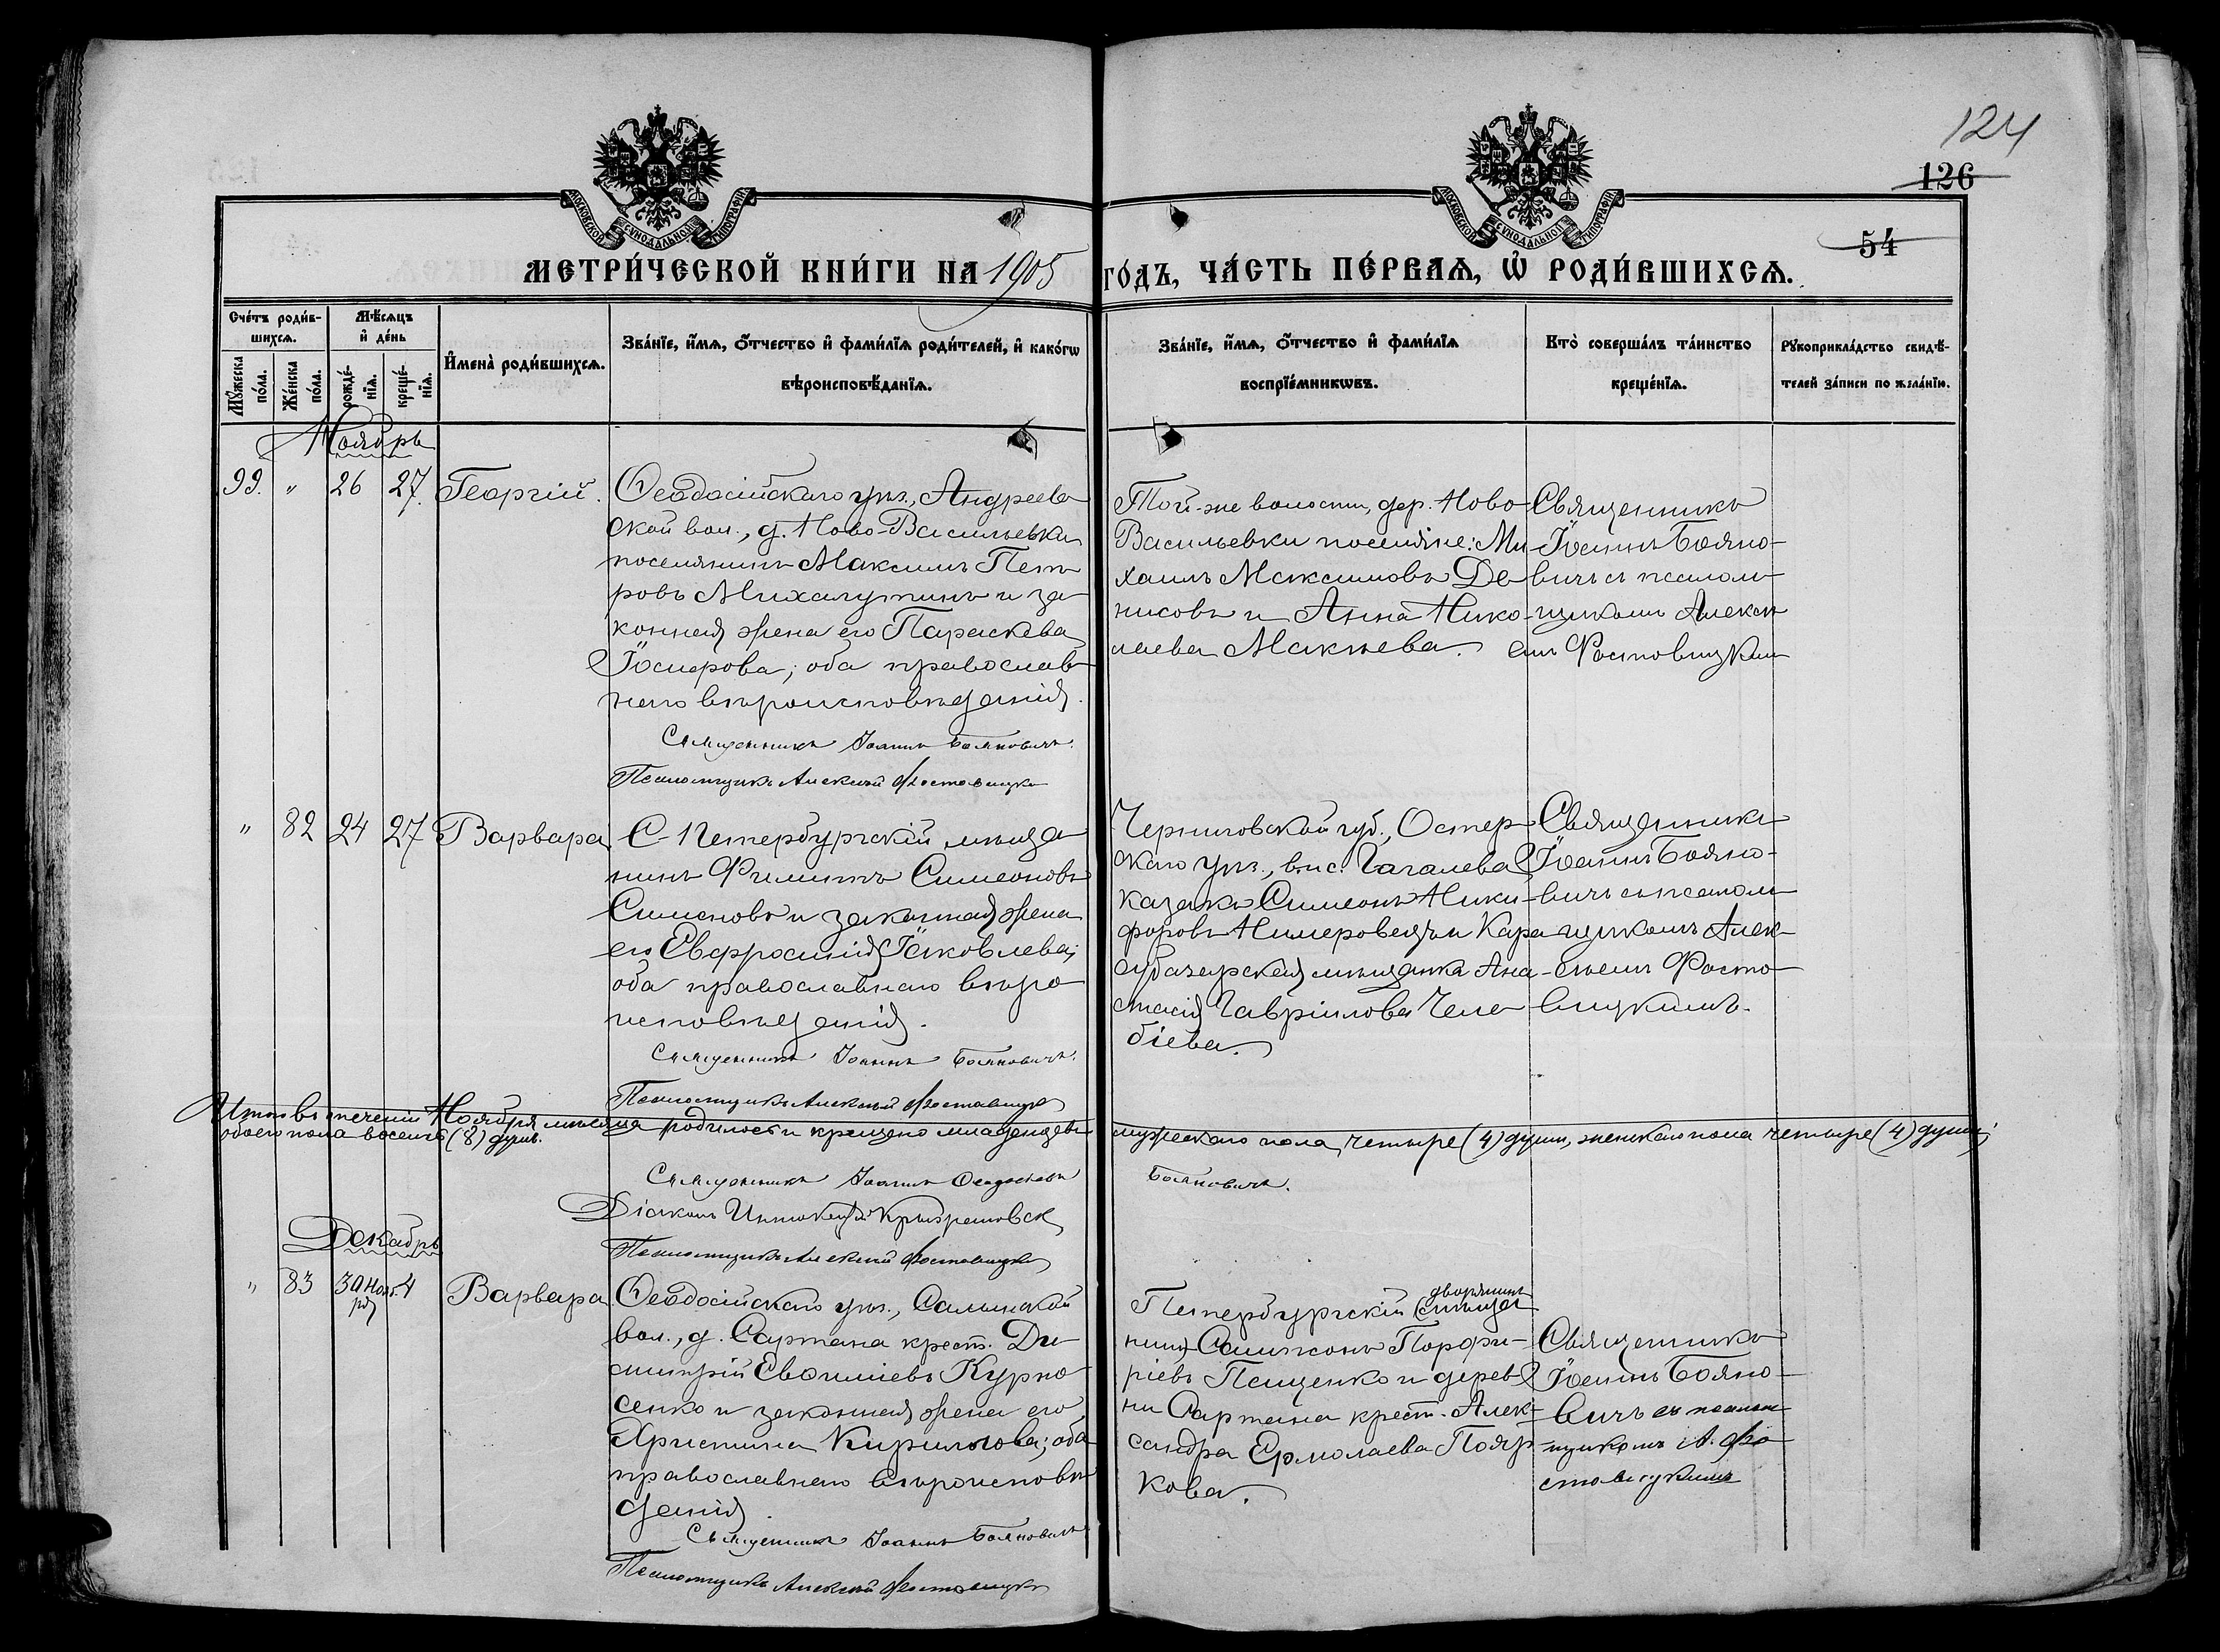 124
126
54
МОСКОВСКОЙ СѴНОДАЛЬНОЙ ТИПОГРАФІИ
МОСКОВСКОЙ СѴНОДАЛЬНОЙ ТИПОГРАФІИ
МЕТРИ́ЧЕСКОЙ КНИ́ГИ НА 1905 ГО́ДЪ, ЧА́СТЬ ПЕ́РВАѦ, Ѡ҆ РОДИ́ВШИХСѦ.
Сче́тъ роди́в-
шихсѧ.
Мѣ́сѧцъ
и҆ де́нь
Мꙋ́жеска по́ла.
Же́нска по́ла.
рожде́-
нїѧ.
креще́-
нїѧ.
И҆мена̀ роди́вшихсѧ.
Зва́нїе, и҆́мѧ, ѻ҆́тчество и҆ фами́лїѧ роди́телей, и҆ како́гѡ
вѣроисповѣ́данїѧ.
Зва́нїе, и҆́мѧ, ѻ҆́тчество и҆ фами́лїѧ
воспрїе́мникѡвъ.
Кто̀ соверша́лъ та́инство
креще́нїѧ.
Рꙋкоприкла́дство свидѣ́-
телей за́писи по жела́нїю.
Ноябрь
99. " 26 27. Георгій.
Ѳеодосійскаго уѣз., Андреев-
ской вол., д. Ново-Васильевки
поселянинъ Максимъ Пет-
ровъ Михалутинъ и за-
конная жена его Параскева
Іосифова; оба православ-
наго вѣроисповѣданія.
Священникъ Іоаннъ Бояновичъ.
Псаломщикъ Алексій Фостовицкі
Той-же волости, дер. Ново-
Васильевки поселяне: Ми-
хаилъ Максимовъ Де-
нисовъ и Анна Нико-
лаева Макнева.
Священникъ
Іоаннъ Бояно-
вичъ съ псалом-
щикомъ Алексѣ-
емъ Фостовицким
" 82 24 27 Варвара
С-Петербургскій мѣща-
нинъ Филиппъ Симеоновъ
Симоновъ и законная жена
его Евфросинія Іаковлева;
оба православнаго вѣро-
исповѣданія.
Священникъ Іоаннъ Бояновичъ.
Псаломщикъ Алексій Фостовицкі
Черниговской губ., Остер-
скаго уѣз., в. и с. Гагалева
казакъ Симеонъ Ники-
форовъ Нимеровецъ и Кара-
субазарская мѣщанка Ана-
стасія Гавріилова Челе-
біева.
Священникъ
Іоаннъ Бояно-
вичъ съ псалом-
щикомъ Алек-
сѣемъ Фосто-
вицкимъ.
Итого въ теченіи Ноября мѣсяца родилось и крещено младенцевъ мужескаго пола четыре (4) души, женскаго пола четыре (4) души;
обоего пола восемь (8) душъ.
Священникъ Іоаннъ Ѳеодосіевъ Бояновичъ.
Діаконъ
Псаломщикъ Алексій Фостовицкі
Декабрь
" 83 30 Нояб-
ря 4 Варвара
Ѳеодосійскаго уѣз., Салынской
вол., д. Сартана крест. Ди-
митрій Евѳиміевъ Курно-
сенко и законная жена его
Христина Кириллова; оба
православнаго вѣроисповѣ-
данія.
Священникъ Іоаннъ Бояновичъ
Псаломщикъ Алексій Фостовицкі
дворянинъ
Петербургскій (мѣща-
нинъ) Сампсонъ Порфи-
ріевъ Пещенко и дерев-
ни Сартана крест. Алек-
сандра Ермолаева Пояр-
кова.
Священникъ
Іоаннъ Бояно-
вичъ съ псалом-
щикомъ А. Фо-
стовицкимъ